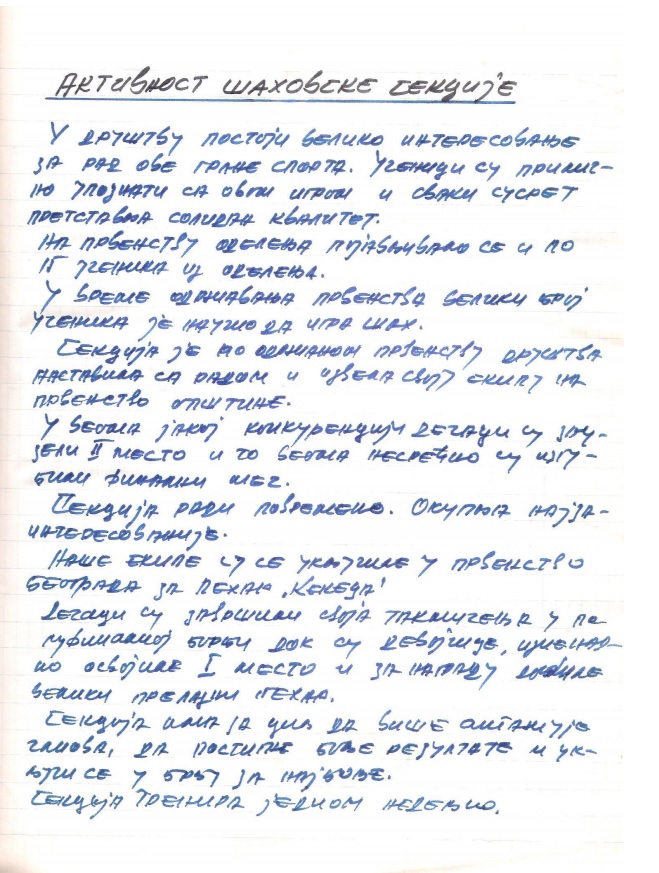 АКТИВНОСТ ШАХОВСКЕ СЕКЦИЈЕ
У друштву постоји велико интересовање
за рад ове гране спорта. Ученици су прилич-
но упознати са овом игром и сваки сусрет
претставља солидан квалитет.
На првенству одељења појављивало се и по
15 ученика из одељења.
У време одржавања првенства велики број
ученика је научио да игра шах.
Секција је по одржаном првенству друштва
наставила са радом и извела своју екипу на
првенство општине.
У веома јакој конкуренцији дечаци су зау-
зели II место и то веома несрећно су изгу-
били финални меч.
Секција ради повремено. Окупља најза-
интересованије.
Наше екипе су се укључиле у првенство
Београда за пехар
Дечаци су завршили своја такмичења у по
луфиналној борби док су девојчице, изненад-
но освојиле I место и за награду добиле
велики прелазни пехар.
Секција има за циљ да више
чланова, да постигне боље резултате и ук-
ључи се у борбу за најбоље.
Секција тренира једном недељно.